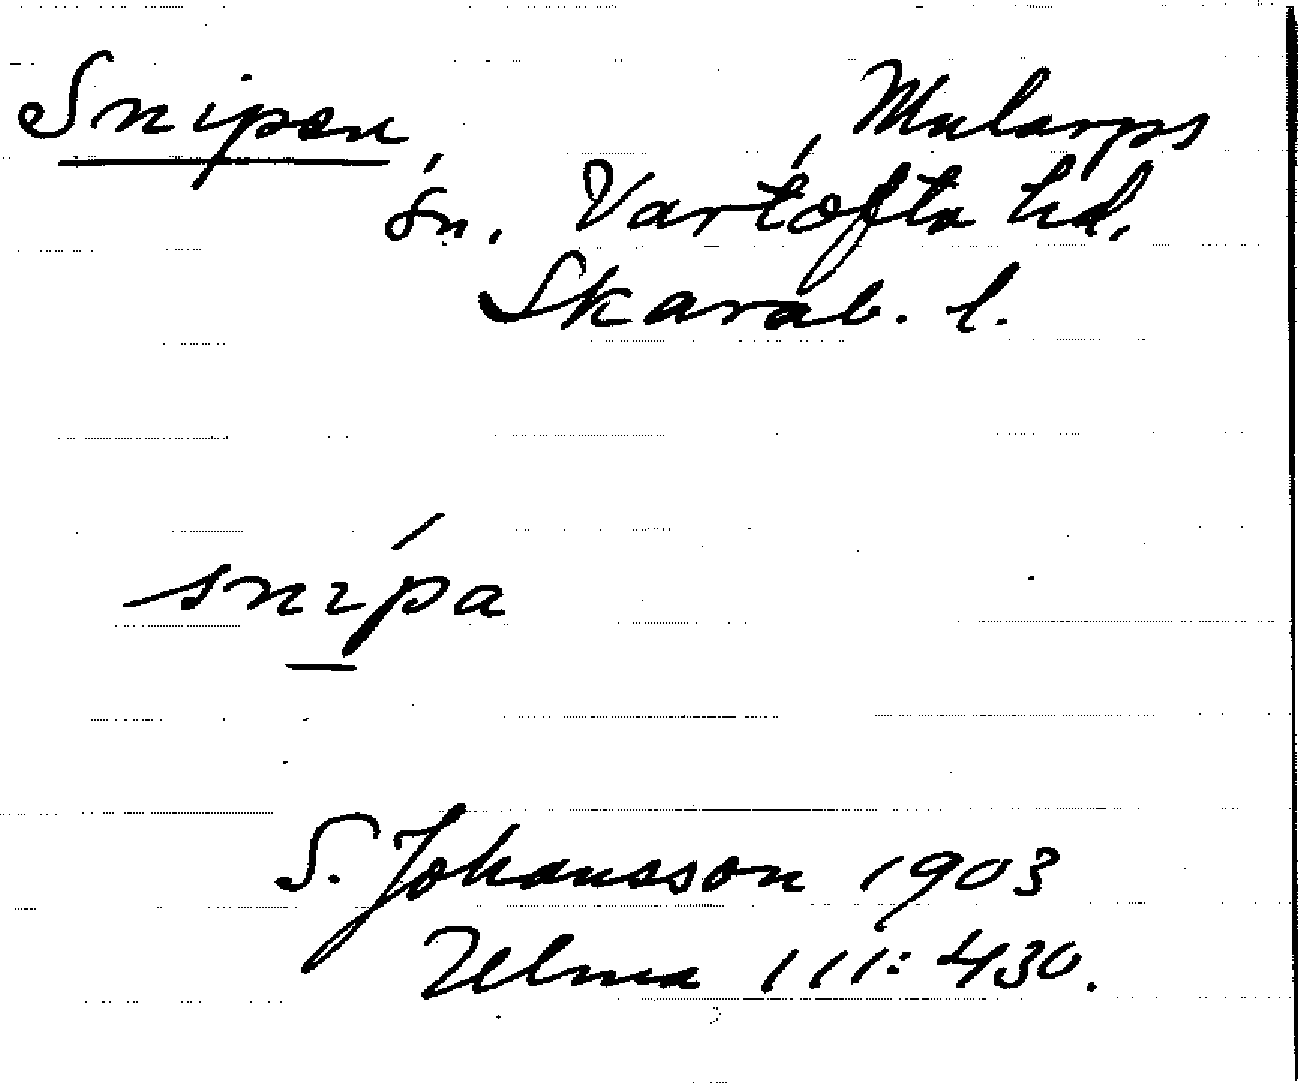 Snipen Mularps
sn. Vartofta hd.
Skarab. l.
snipa
S. Johansson 1903
Ulma 111:430.